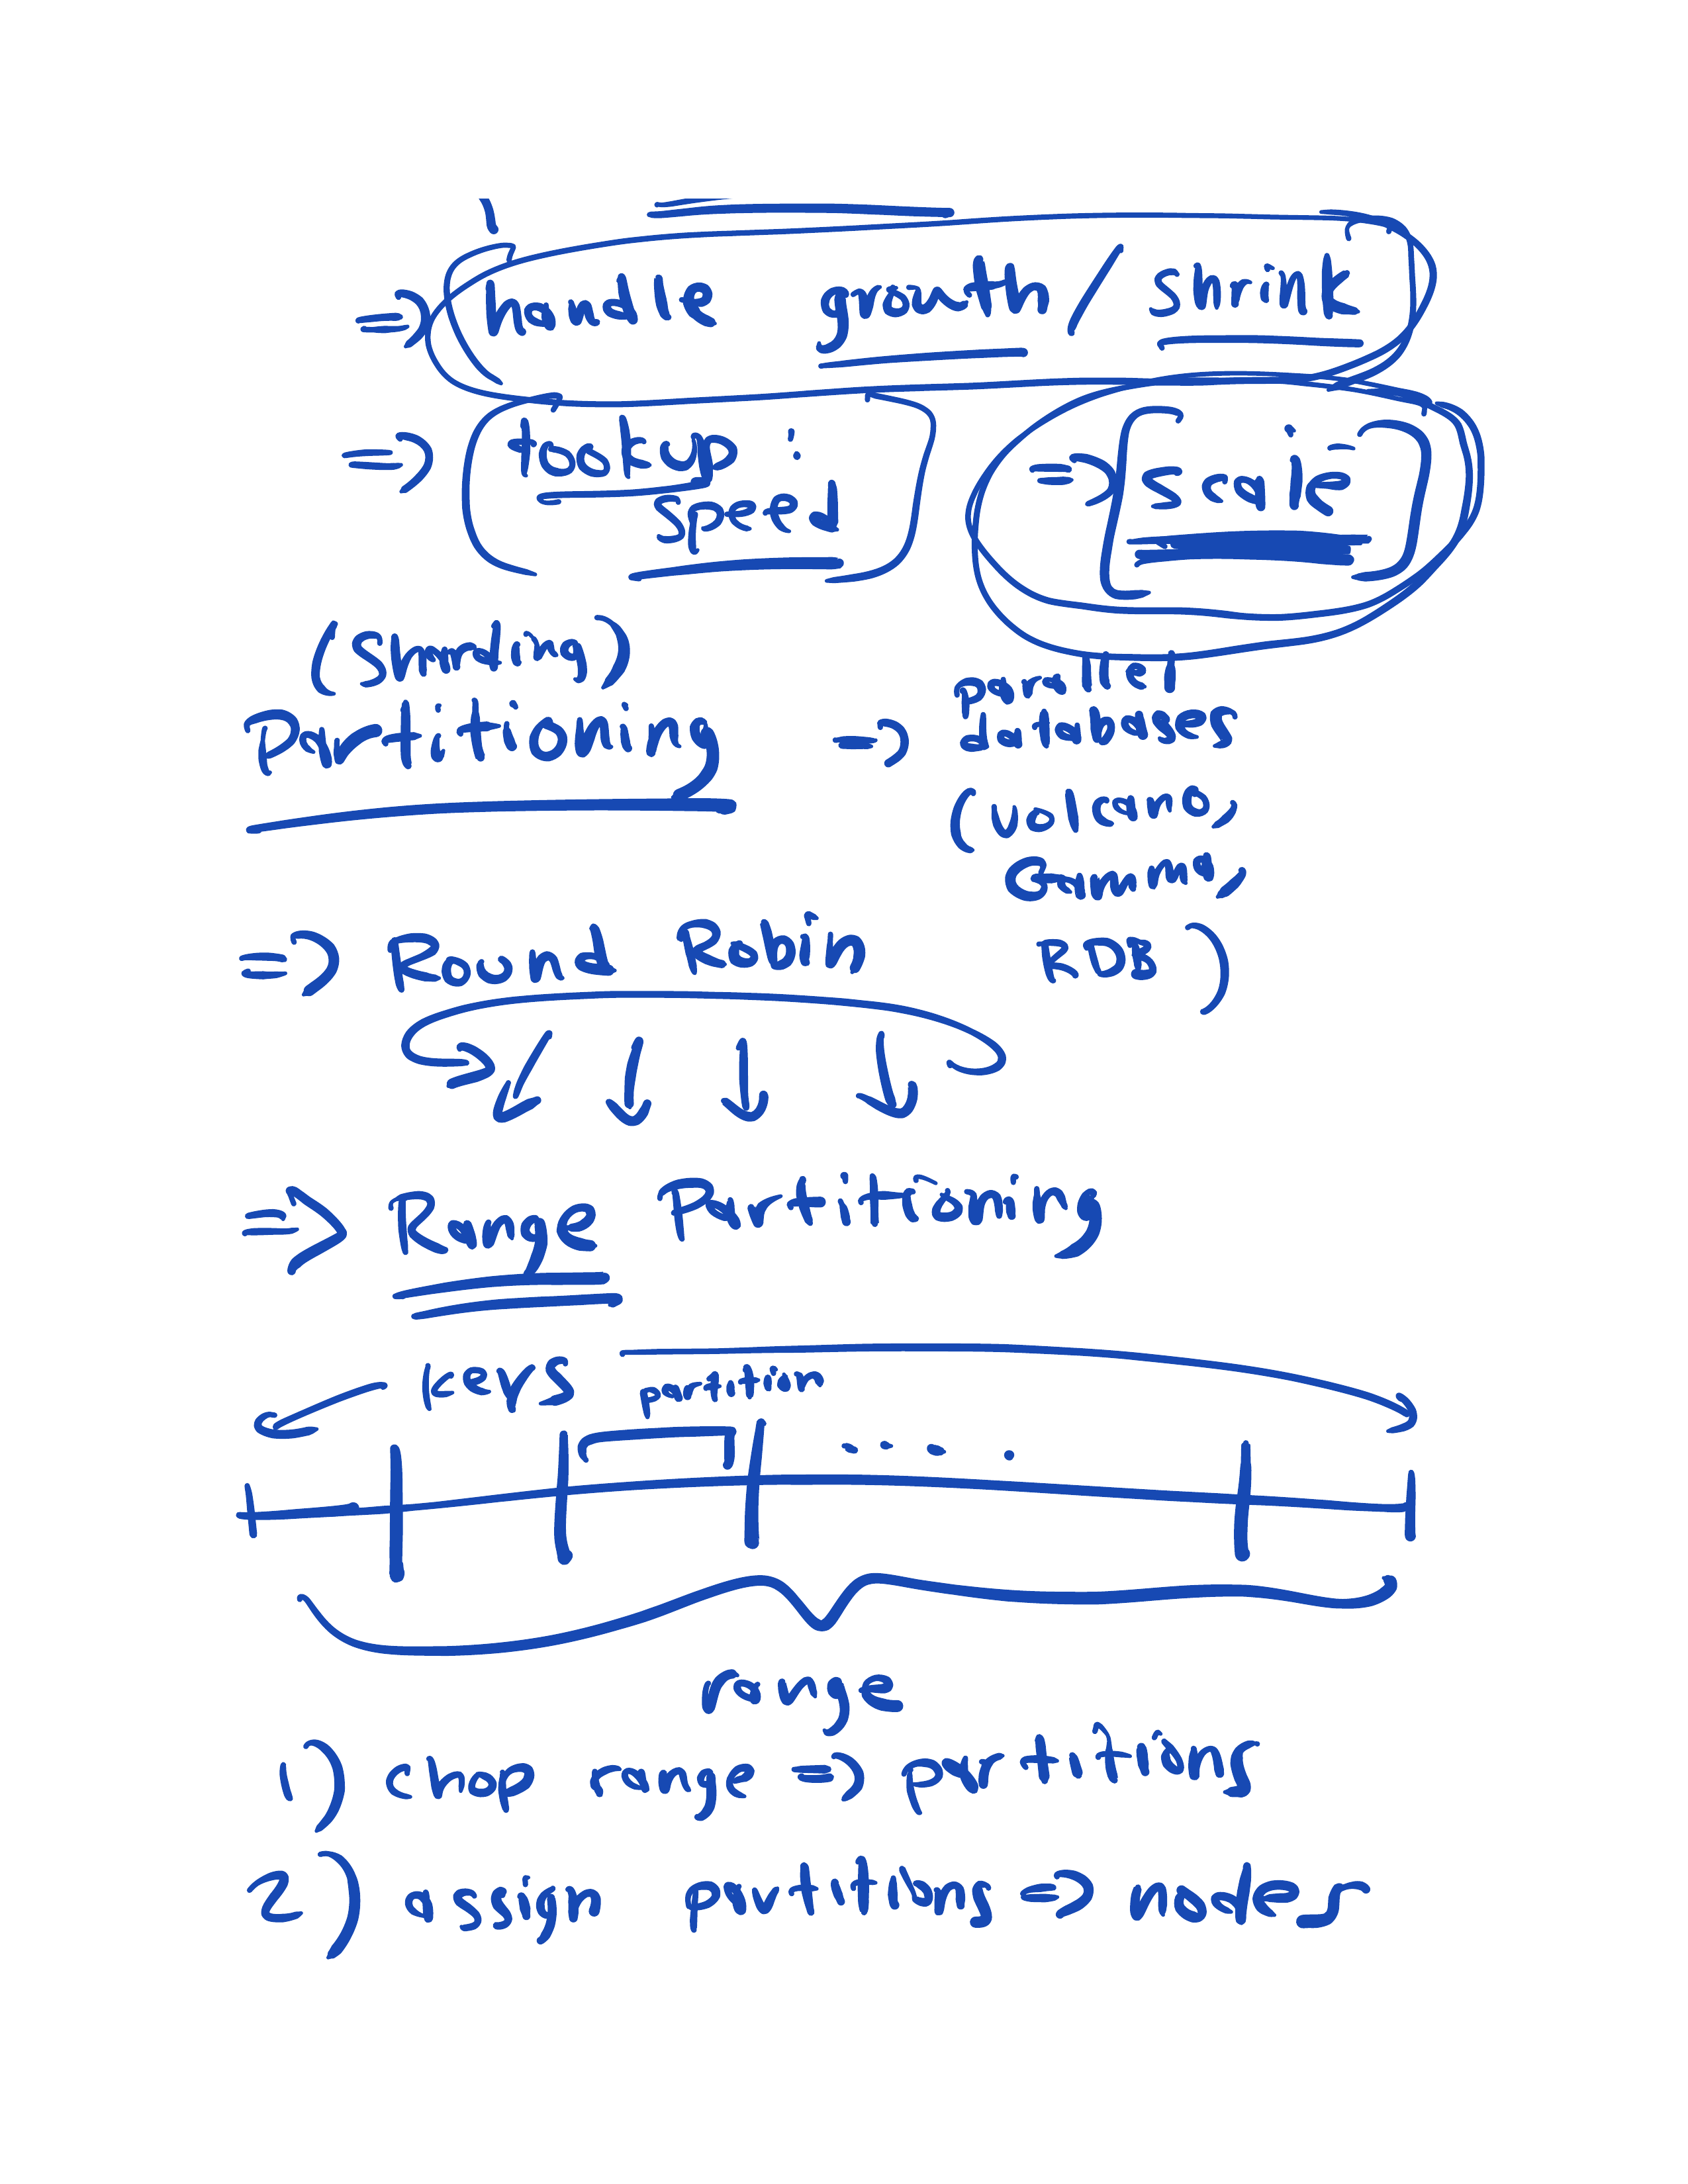 => handle growth / shrink
=> lookup :
speed
=> scale
(Sharding)
Partitioning => parallel
databases
(Volcano,
Gamma,
RDB)
=> Round Robin
=> Range Partitioning
keys
partition
. . . .
range
1) chop range => partitions
2) assign partitions => nodes